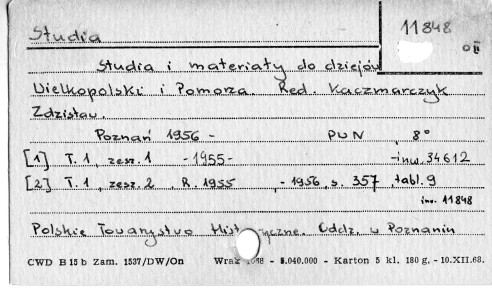 Studia
11848
Studia i materiały do dziejów
Wielkopolski i Pomorza. Red. Kaczmarczyk
Zdzisław.
Poznań 1956 - PWN 8°
[1] T.1, zesz. 1 -1955- -inw. 34612
[2] T.1, zesz. 2, R. 1955, -1956, s. 357, tabl. 9
inw. 11848
Polskie Towarzystwo Historyczne. Oddz. w Poznaniu
CWD B 15 b Zam. 1537/DW/On - .040.000 - Karton 5 kl. 180 g. - 10.XII.68.